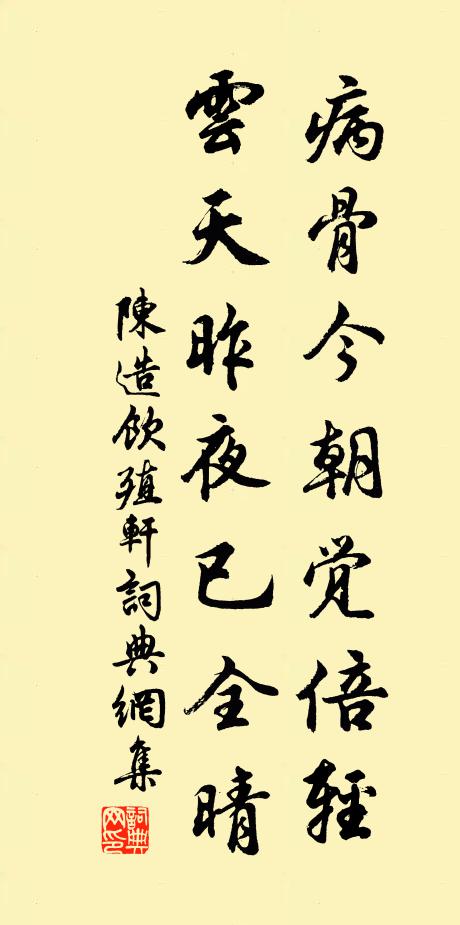 病骨今朝觉倍輕
雲天昨夜已全晴
陳造飲殖軒詞典網集
詞典网印